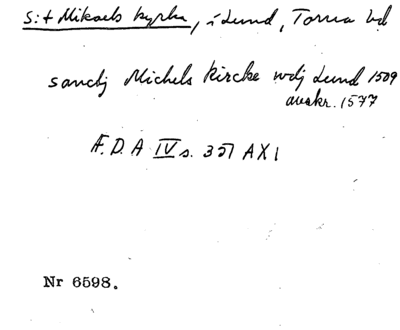 S:t Mikaels kyrka, i Lund, Torna hd
sanctj Michels kircke wdj Lund 1509
avskr. 1577
F.D.A IV s. 351 AX1
Nr 6598.